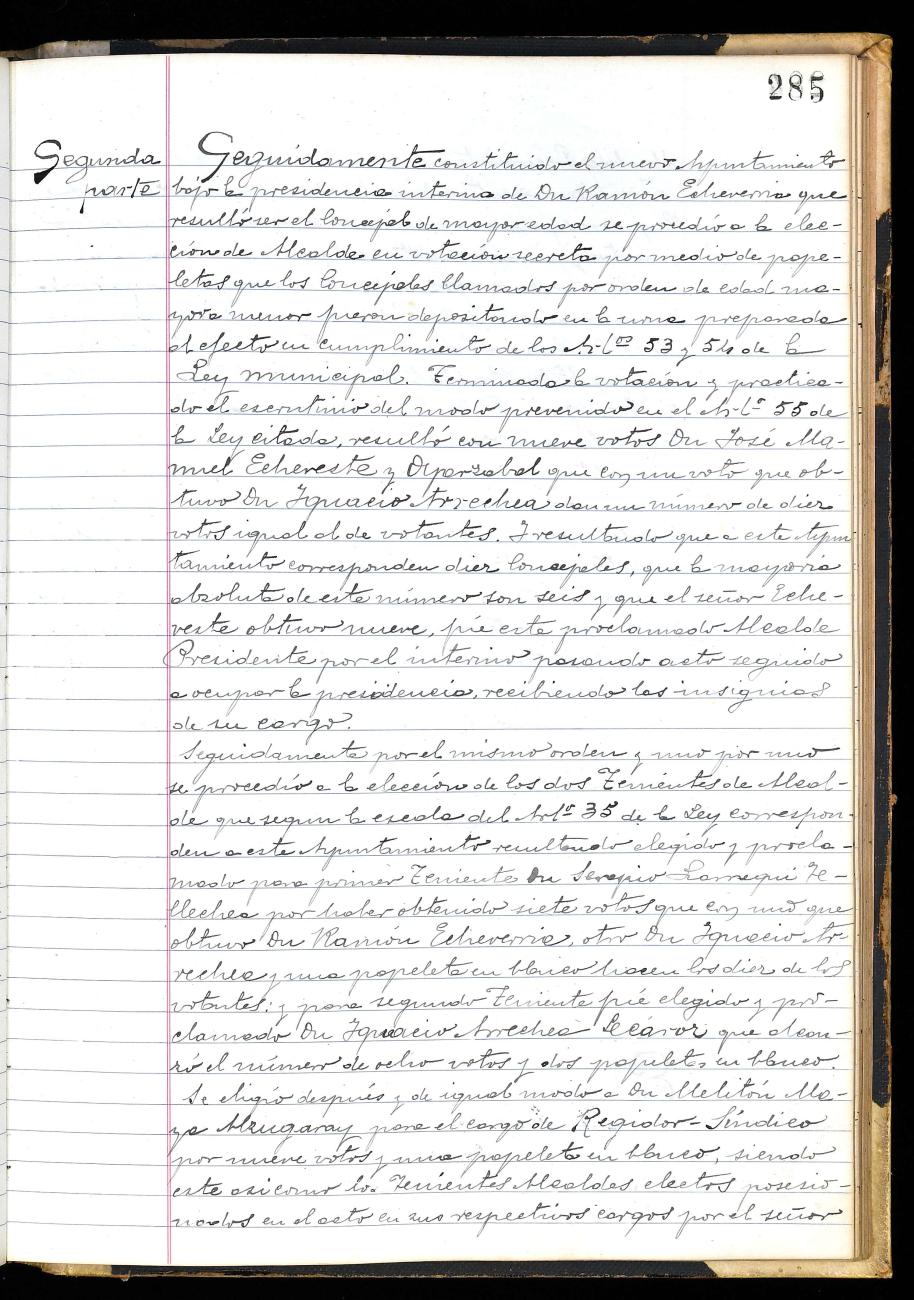 285
Segunda
parte
Seguidamente constituido el nuevo Ayuntamiento
bajo la presidencia interina de Dn Ramón Echeverria que
resultó ser el Concejal de mayor edad se procedió a la elec-
ción de Alcalde en votación secreta por medio de pape-
letas que los Concejales llamados por orden de edad ma-
yor a menor fueron depositando en la urna preparada
al efecto en cumplimiento de los Artos 53 y 54 de la
Ley municipal. Terminada la votación y practica-
do el escrutinio del modo prevenido en el Arto 55 de
la Ley citada, resultó con nueve votos Dn José Ma-
nuel Echeveste y Oyarzabal que con un voto que ob-
tuvo Dn Ignacio Arrechea dan un número de diez
votos igual al de votantes. Y resultando que a este Ayun
tamiento corresponden diez Concejales, que la mayoria
absoluta de este número son seis y que el señor Eche-
veste obtuvo nueve, fué este proclamado Alcalde
Presidente por el interino pasando acto seguido
a ocupar la presidencia, recibiendo las insignias
de su cargo.
Seguidamente por el mismo orden y uno por uno
se procedió a la elección de los dos Tenientes de Alcal-
de que segun la escala del Arto 35 de la Ley correspon-
den a este Ayuntamiento resultando elegido y procla-
mado para primer Teniente Dn Serapio Larregui Te-
llechea por haber obtenido siete votos que con uno que
obtuvo Dn Ramón Echeverria, otro Dn Ignacio Ar-
rechea y una papeleta en blanco hacen los diez de los
votantes; y para segundo Teniente fué elegido y pro-
clamado Dn Ignacio Arrechea Lecároz que alcan-
zó el número de ocho votos y dos papeletas en blanco.
Se eligió después y de igual modo a Dn Melitón Ma-
ya Alzugaray para el cargo de Regidor-Síndico
por nueve votos y una papeleta en blanco, siendo
este asi como los Tenientes Alcaldes electos posesio-
nados en el acto en sus respectivos cargos por el señor